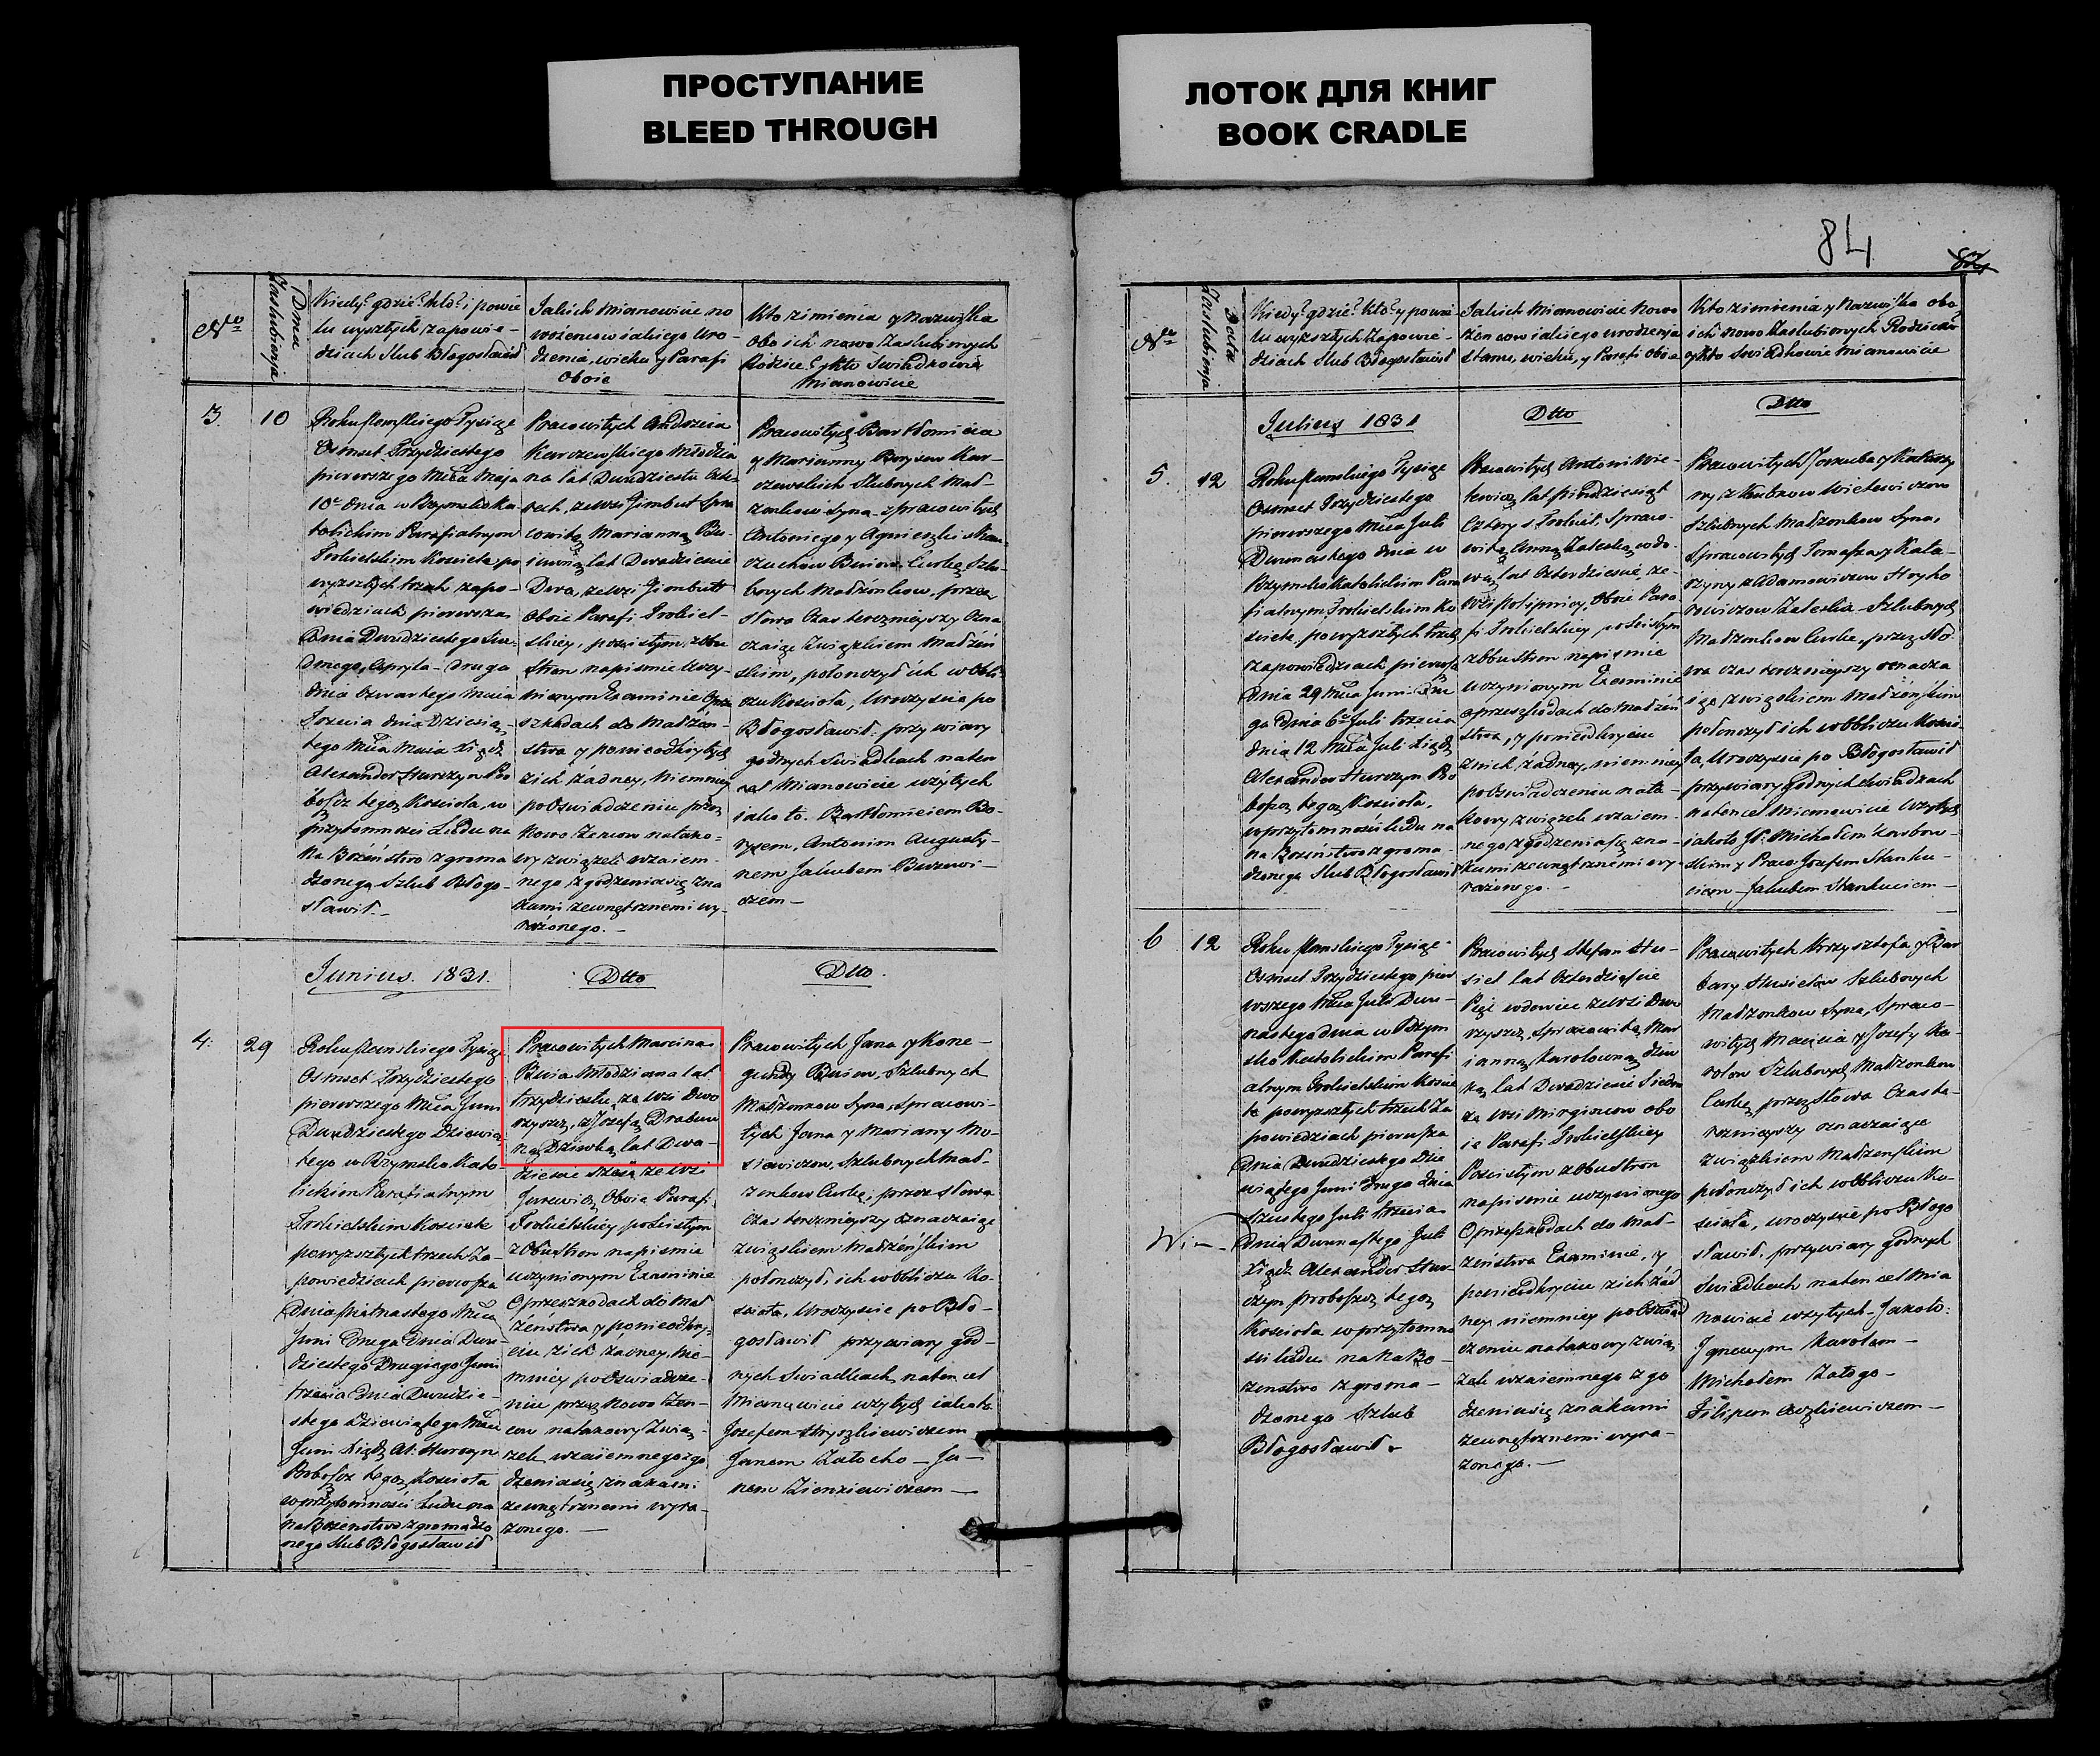 ПРОСТУПАНИЕ
BLEED THROUGH
ЛОТОК ДЛЯ КНИГ
BOOK CRADLE
84
82
Nro
Dnia
Zaslubienia
Kiedy? gdzie? kto? i po wie
lu wyszłych zapowie-
dziach Slub Błogosławił
Jakich mianowicie no
wożencow iakiego uro-
dzenia, wieku y Parafi
oboie
Kto zimienia y Nazwiska
obo ich nowo Zaslubionych
Rodzice? y kto Swiadkowie
Mianowicie
3.
10
Roku Pańskiego Tysiąc
Osmset Trzydziestego
pierwszego Mca Maja
10o dnia w Rzymsko Ka
tolickim Parafialnym
Trokielskim Kosciele po
wyszłych trzech zapo-
wiedziach pierwsza
Dnia Dwudziestego Siu-
dmego Apryla - druga
dnia czwartego Maia
Trzecia dnia Dziesią-
tego Mca Maia Xiądz
Alexander Hurczyn Pro
boszcz tegoż Kościoła, w
przytomności Ludu na
Na Bożeństwo zgroma
dzonego Szlub Błogo-
sławił.-
Pracowitych Andrzeia
Karczewskiego Młodzia
na lat Dwudziestu Czte-
rech, zewsi Gimbut Spra
cowitą Marianną Bu-
iwną lat Dwadziescie
Dwa, zewsi Gimbutt
oboie Parafi Trokiel-
skiey, poscisłym zobu
Stron napismie Uczy-
nionym Examinie Oprze
szkodach do Małżen-
stwa y ponieodkrytych
zich żadney, Niemniey
poOswiadczeniu przez
Nowo Żencow natako-
wy związek wzaiem-
nego zgodzeniasię zna
kami zewnętrznemi wy-
rażonego.-
Pracowitych Bartłomieia
y Marianny Borysow Kar-
czewskich Slubnych Mał-
żonkow Syna- zpracowitych
Antoniego y Agnieszki
Buiow Curką Szlu-
bnych Małżonkow, przez
Słowa Czas terazmieyszy Ozna
czaiące Związkiem Małżeń
skim, połonczył ich w Obli
czu Kościoła, Uroczyscie po
Błogosławił: przy wiary
godnych Swiadkach naten
cel Mianowicie użytych
iako to. Bartłomieiem Bo-
rysem, Antonim Augusty-
nem Jakubem Buzewi-
czem-
Junius. 1831.
Dtto
Dtto.
4.
29
Roku Pańskiego Tysiąc
Osmset Trzydziestego
pierwszego Mca Juni
Dwudziestego Dziewią
tego w Rzymsko Kato
lickim Parafialnym
Trokielskim Kosciele
powyszłych trzech Za-
powiedziach pierwsza
Dnia Piętnastego Mca
Juni Druga Dnia Dwu-
dziestego Drugiego Juni
trzecia Dnia Dwudzie-
stego Dziewiątego Mca
Juni Xiądz Al: Hurczyn
Proboszcz tegoż Kościoła
w przytomności Ludu na
na Bożenstwo zgromadzo
nego Slub Błogosławił
Pracowitych Marcina
Buia Młodziana lat
trzydziestu, za wsi Dwo
rzyszcz, zJozefą Drabow
ną Dziewką lat Dwa-
dziescie Szesć ze Wsi
Jurewicz Oboie Parafi
Trokielskiey poscisłym
zObustron napismie
uczynionym Examinie
Oprzeszkodach do Mał
żenstwa y ponieodkry-
ciu zich żadney, Nie-
mniey poOswiadcze-
niu przez Nowo Żen-
cow natakowy Zwią-
zek wzaiemnego zgo
dzeniasię znakami
zewnętrznemi wyra-
żonego.-
Pracowitych Jana y Kone-
gundy Buiow, Szlubnych
Małżonkow Syna, Spracowi-
tych Jana y Mariany Mo-
siewiczow, Szlubnych Mał-
żonkow Curką, przez słowa
czas terazmieyszy Oznaczaiące
związkiem Małżeńskim
połonczył, ich wobliczu Ko-
scioła, Uroczyscie po Bło-
gosławił przywiary god-
nych Swiadkach, naten cel
Mianowicie użytych iakoto
Jozefem Hryszkiewiczem
Janem Zatocho- Ja-
nem Zienkiewiczem-
Nro
Data
Zaslubienia
Kiedy? gdzie? kto? y powie
lu wyszłych Zapowie-
dziach Slub Błogosławił
Jakich Mianowicie Nowo
Żencow iakiego urodzenia
stanu, wieku, y Parafi oboie
Kto zimienia y Nazwiska obo
ich nowo Zaslubionych Rodzicow
y kto Swiadkowie mianowicie
Julius 1831
Dtto
Dtto
5.
12
Roku Pańskiego Tysiąc
Osmset Trzydziestego
pierwszego Mca Juli
Dwunastego dnia w
Rzymsko Katolickim Para
fialnym Trokielskim Ko
sciele powyszłych trzech
zapowiedziach pierwsza
dnia 29 Mca Juni dru
ga dnia 6o Juli trzecia
dnia 12 Mca Juli Xiądz
Alexander Hurczyn Pro
boszcz tegoż Kościoła,
wprzytomności ludu na
na Bożeństwo zgroma-
dzonego Slub Błogosławił
Pracowitych Antoni Wie-
tewicz lat piędziesiąt
Cztery Spraco-
witą Anną Zaleską wdo-
wą lat Czterdziescie, ze-
wsi oboie Para
fi Trokielskiey poscisłym
zObustron napismie
uczynionym Examinie
oprzeszkodach do Małżeń
stwa, y ponieodkryciu
znich żadney, niemniey
poOswiadczeniu nata-
kowy związek wzaiem-
nego zgodzeniasię zna-
kami zewnętrznemi wy-
rażonego.-
Pracowitych Jakuba y Katarzy
ny Wietewiczow
Szlubnych Małżonkow Syna,
Spracowitych Tomasza y Kata-
rzyny zAdamowiczow Hryho
rowiczow Zaleskich- Szlubnych
Małżonkow Curką, przez sło-
wa czas terazmieyszy oznacza
iące związkiem Małżeńskim
połonczył ich wobliczu Koscio
ła, Uroczyscie po Błogosławił
przywiary godnych Swiadkach
naten cel Mianowicie użytych
iakoto JP. Michałem
y Praco: Jozefem Stanku-
ciem- Jakubem Stankuciem-
6
12
Roku Pańskiego Tysiąc
Osmset Trzydziestego pier
wszego Mca Juli Dwu-
nastego dnia w Rzym
sko Katolickim Parafi
alnym Trokielskim Koscie
le powyszłych trzech Za
powiedziach pierwsza
dnia Dwudziestego Dzie
wiątego Juni Druga dnia
Szustego Juli trzecia
Dnia Dwunastego Juli
Xiądz Alexander Hur-
czyn Proboszcz tegoż
Kościoła wprzytomno
sci ludu na Na Bo-
żenstwo zgroma-
dzonego Szlub
Błogosławił.
Pracowitych Stefan
lat Czterdziescie
Pięć wdowiec zewsi Dwo
rzyszcz, Spracowitą Mar
ianną Karolowną dziew
ką lat Dwadziescie Siedm
za Wsi Mirginow obo
ie Parafi Trokielskiey
Poscisłym zObustron
napismie uczynionego
Oprzeszkodach do Mał-
żeństwa Examinie, y
ponieodkryciu zich żad
ney niemniey poOswiad
czeniu natakowy zwią
zek wzaiemnego zgo
dzeniasię znakami
zewnętrznemi wyra-
żonego.-
Pracowitych Krzysztofa y Bar
bary Szlubnych
Małżonkow Syna, Spraco-
witych Macieia y Jozefy Ka-
rolow Szlubnych Małżonkow
Curką przez słowa Czas te-
razmieyszy oznaczaiące
związkiem Małżenskim
połonczył ich wobliczu Ko-
scioła, uroczyscie po Błogo
sławił. przywiary godnych
Swiadkach naten cel Mia
nowicie użytych- Jakoto:
Jgnacym Karolem-
Michałem Załogo-
Filipem